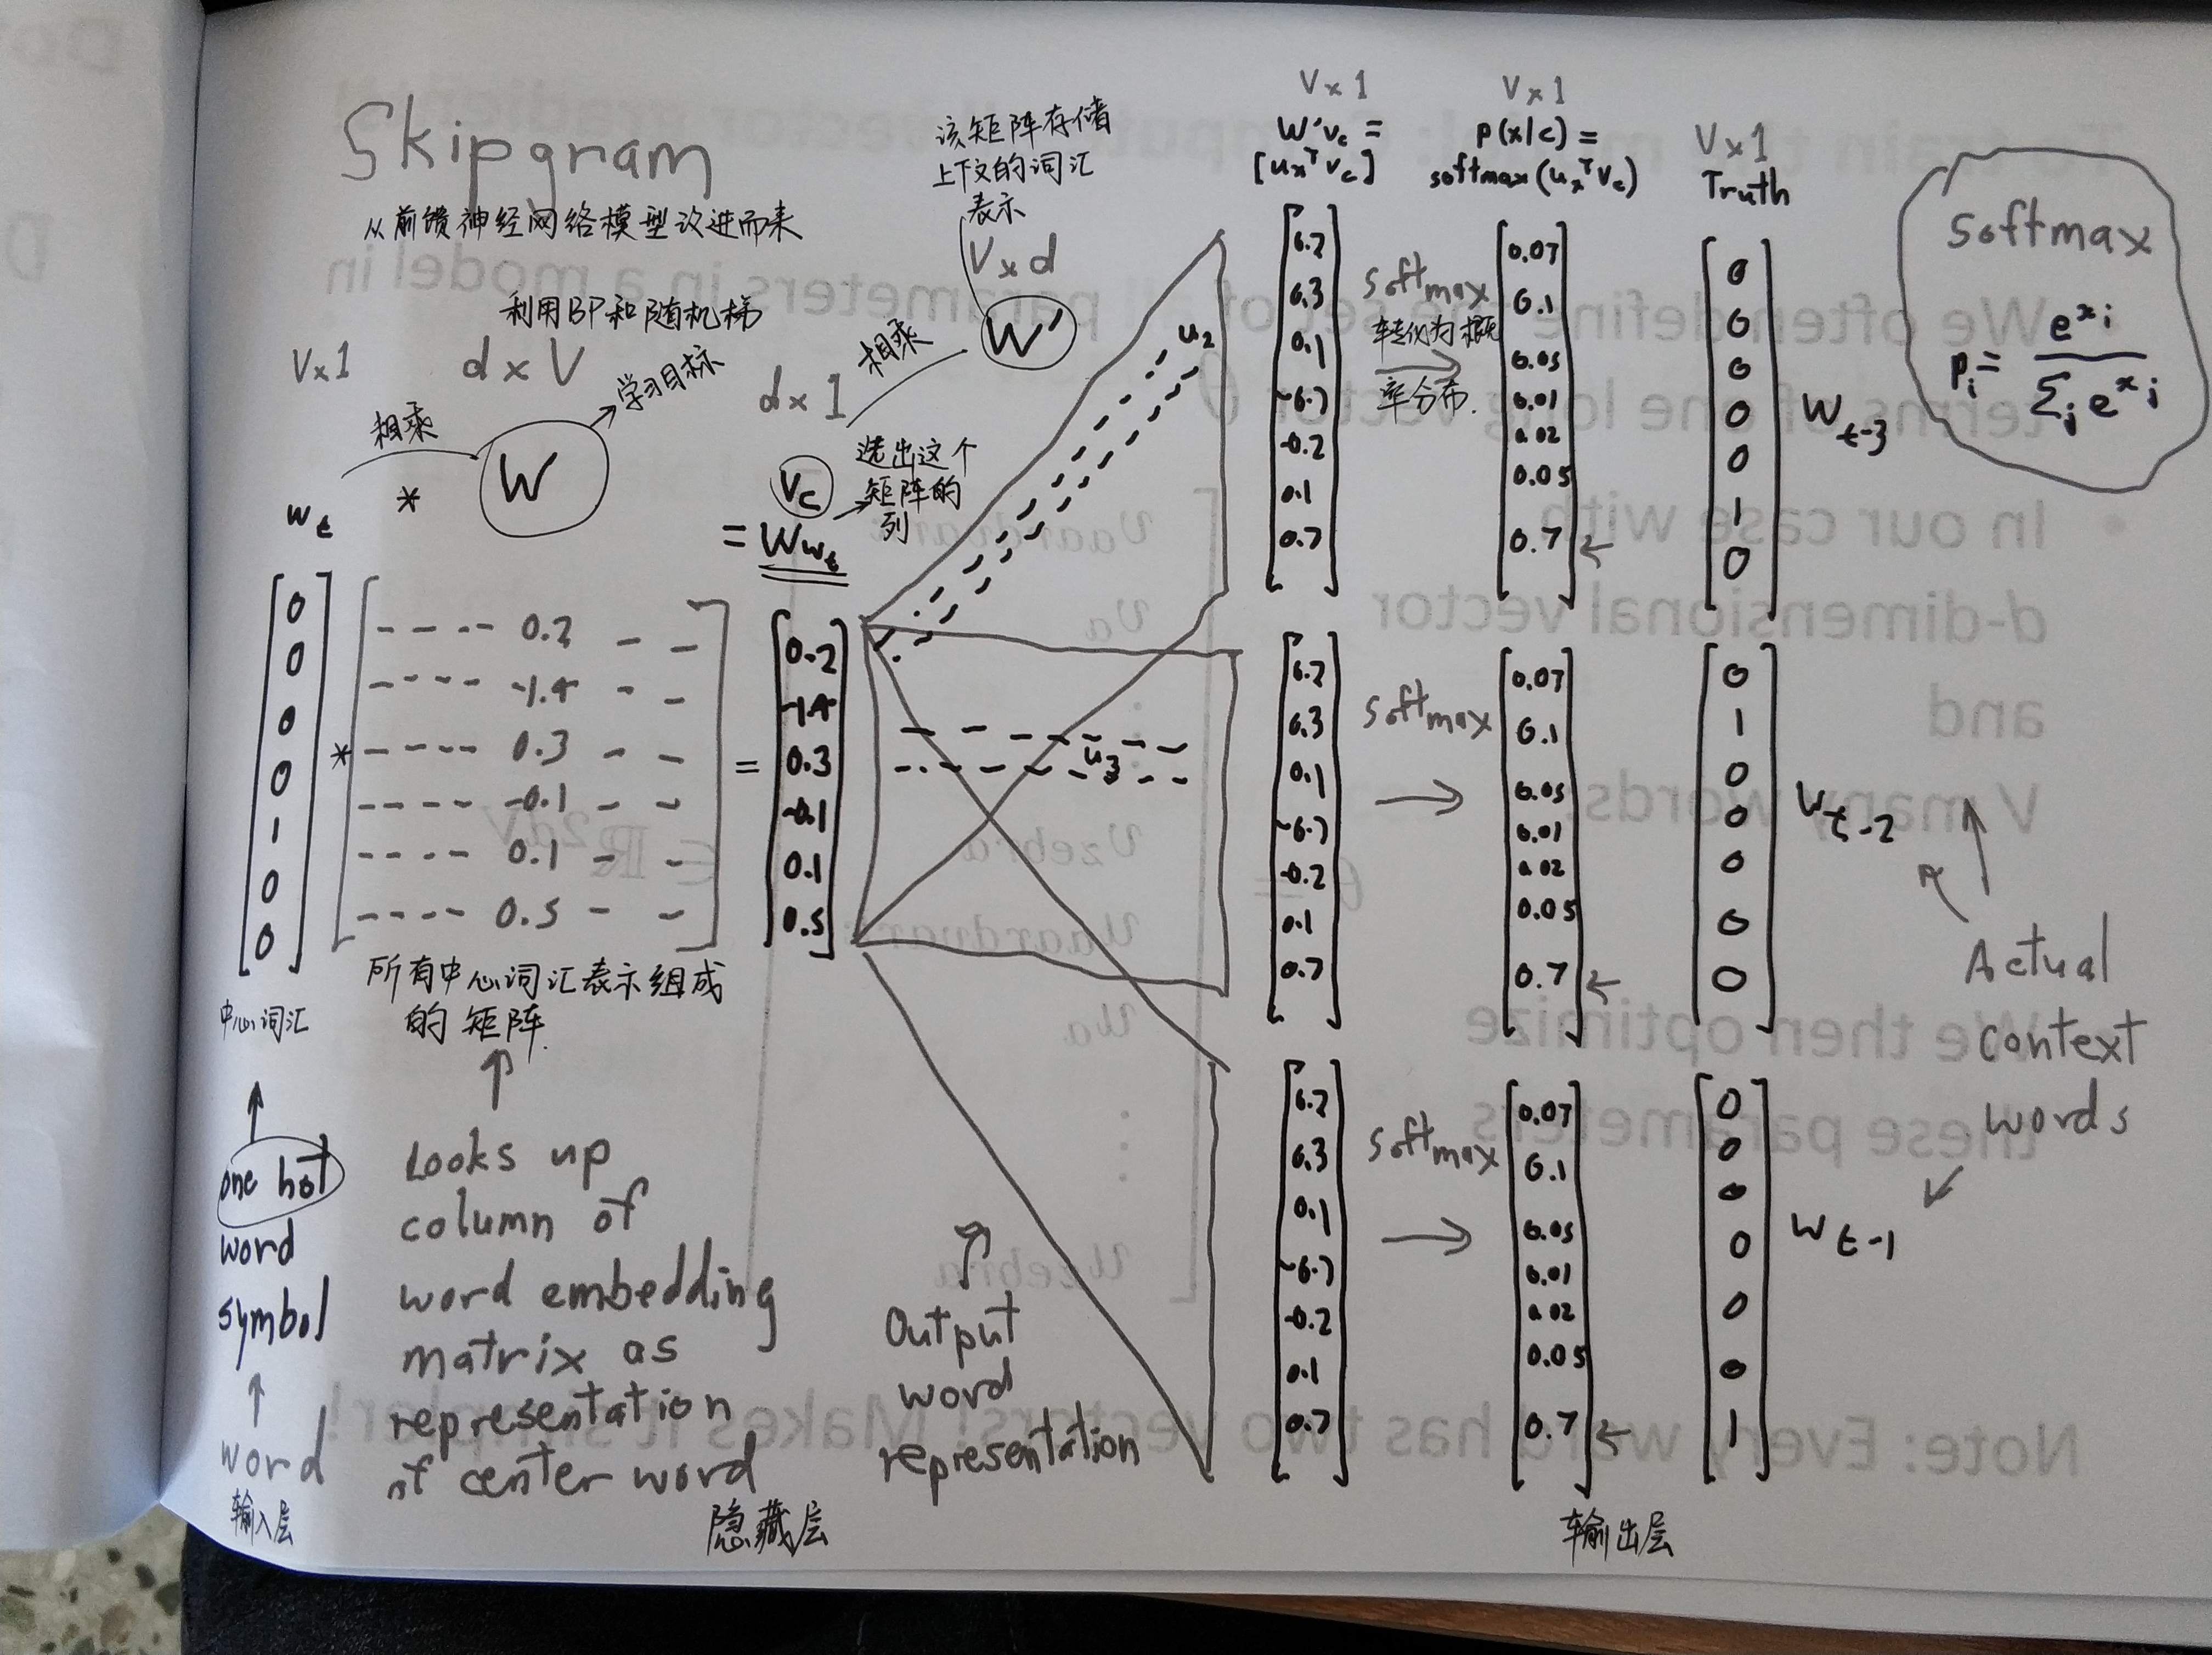 Skipgram
从前馈神经网络模型改进而来
利用BP和随机梯
学习目标
V×1
d×V
d×1
V×d
相乘
*
W
相乘
W'
该矩阵存储
上下文的词汇
表示
w_t
v_c
= W w_t
选出这个
矩阵的
列
0
0
0
0
1
0
0
*
---- 0.2 - -
---- -1.4 - -
---- 0.3 - -
---- -0.1 - -
---- 0.1 - -
---- 0.5 - -
=
0.2
-1.4
0.3
-0.1
0.1
0.5
u_2
u_3
中心词汇
所有中心词汇表示组成
的矩阵.
one hot
word
symbol
word
输入层
Looks up
column of
word embedding
matrix as
representation
of center word
隐藏层
Output
word
representation
V×1
W'v_c =
[u_x^T v_c]
V×1
p(x|c) =
softmax(u_x^T v_c)
V×1
Truth
6.7
6.3
0.1
-6.7
-0.2
0.1
0.7
softmax
转化为概
率分布.
0.07
0.1
0.05
0.01
0.02
0.05
0.7
0
0
0
0
0
1
0
w_t-3
6.7
6.3
0.1
-6.7
-0.2
0.1
0.7
softmax
0.07
0.1
0.05
0.01
0.02
0.05
0.7
0
1
0
0
0
0
0
w_t-2
6.7
6.3
0.1
-6.7
-0.2
0.1
0.7
softmax
0.07
0.1
0.05
0.01
0.02
0.05
0.7
0
0
0
0
0
0
1
w_t-1
输出层
Actual
context
words
softmax
p_i = e^{x_i} / Σ_j e^{x_j}